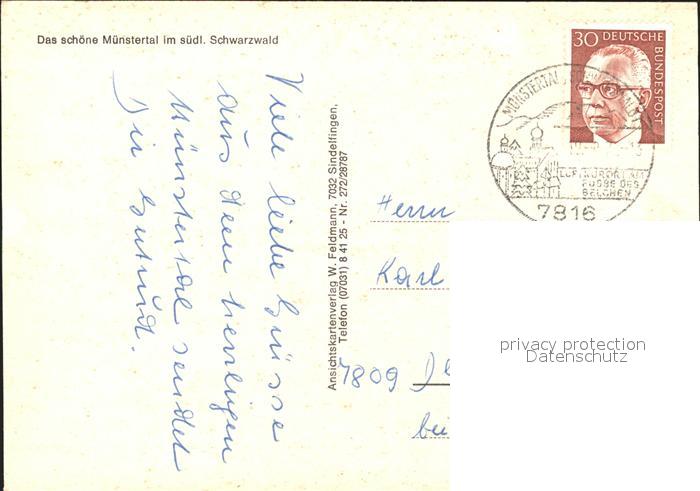 Das schöne Münstertal im südl. Schwarzwald
Viele liebe Grüsse
aus dem herrlichen
Münstertal sendet
Dir Gertrud.
Ansichtskartenverlag W. Feldmann, 7032 Sindelfingen,
Telefon (07031) 8 41 25 - Nr. 272/28787
30 DEUTSCHE
BUNDESPOST
MÜNSTERTAL
LUFTKURORT AM
FUSSE DES
BELCHEN
7816
Herrn
Karl
7809
bei
privacy protection
Datenschutz